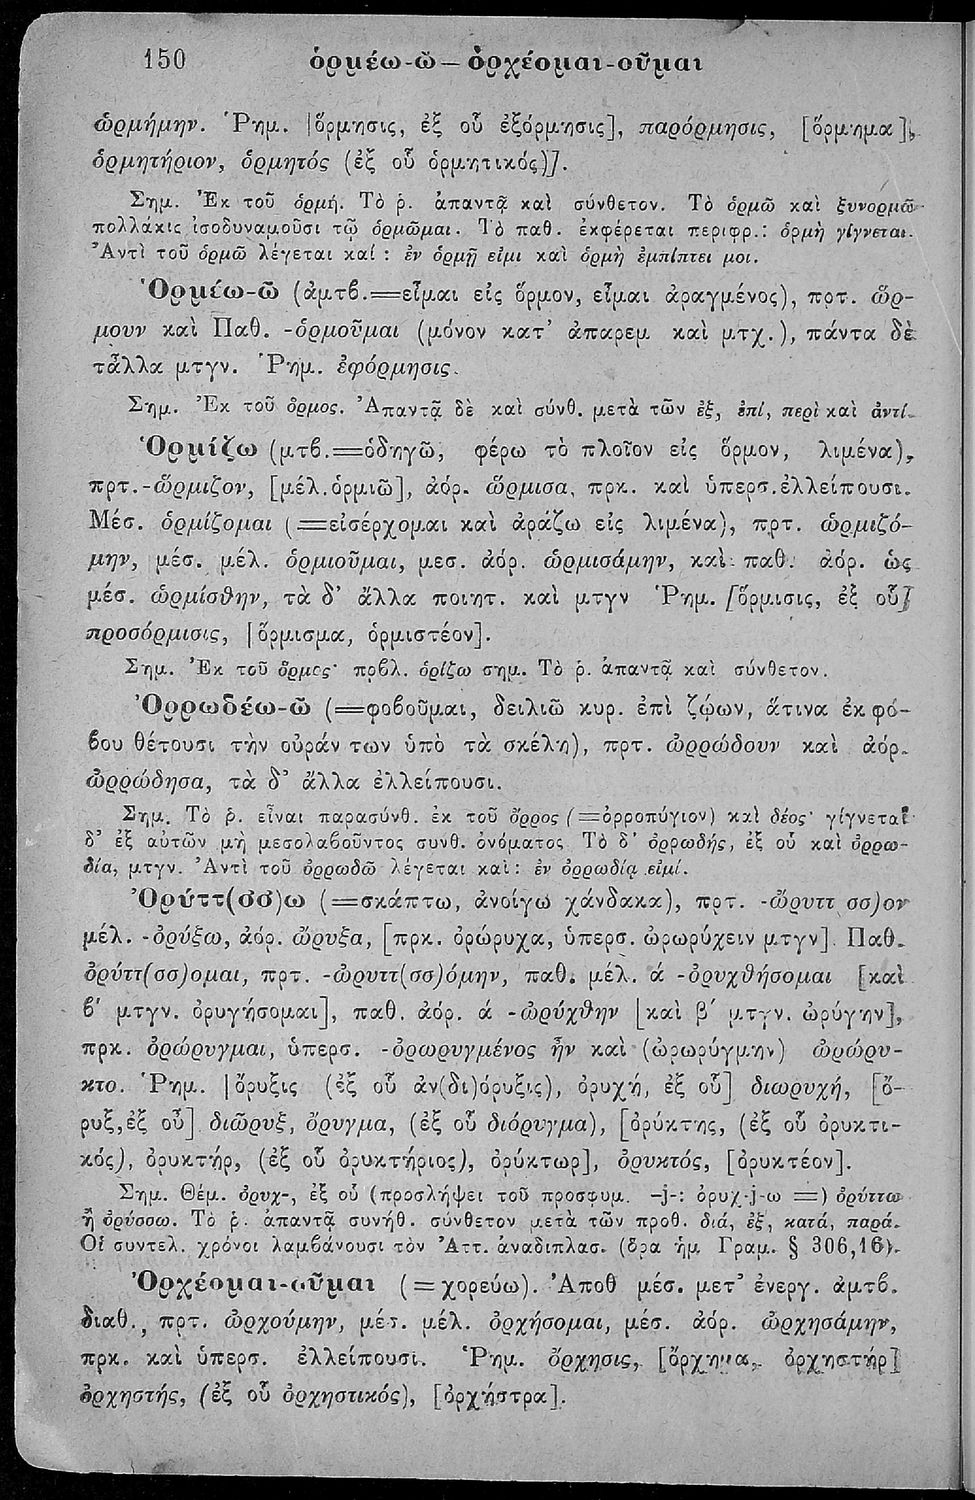 150 ὁρμέω-ῶ — ὀρχέομαι-οῦμαι
ὡρμήμην. Ῥημ. [ὅρμησις, ἐξ οὗ ἐξόρμησις], παρόρμησις, [ὅρμημα],
ὁρμητήριον, ὁρμητός (ἐξ οὗ ὁρμητικός)].
Σημ. Ἐκ τοῦ ὁρμή. Τὸ ῥ. ἀπαντᾷ καὶ σύνθετον. Τὸ ὁρμῶ καὶ ξυνορμῶ
πολλάκις ἰσοδυναμοῦσι τῷ ὁρμῶμαι. Τὸ παθ. ἐκφέρεται περιφρ.: ὁρμὴ γίγνεται.
Ἀντὶ τοῦ ὁρμῶ λέγεται καί : ἐν ὁρμῇ εἰμι καὶ ὁρμὴ ἐμπίπτει μοι.
Ὁρμέω-ῶ (ἀμτβ.=εἶμαι εἰς ὅρμον, εἶμαι ἀραγμένος), πρτ. ὥρ-
μουν καὶ Παθ. -ὁρμοῦμαι (μόνον κατ' ἀπαρεμ καὶ μτχ.), πάντα δὲ
τἆλλα μτγν. Ῥημ. ἐφόρμησις.
Σημ. Ἐκ τοῦ ὅρμος. Ἀπαντᾷ δὲ καὶ σύνθ. μετὰ τῶν ἐξ, ἐπί, περὶ καὶ ἀντί.
Ὁρμίζω (μτβ.=ὁδηγῶ, φέρω τὸ πλοῖον εἰς ὅρμον, λιμένα),
πρτ.-ὥρμιζον, [μέλ.ὁρμιῶ], ἀόρ. ὥρμισα, πρκ. καὶ ὑπερσ.ἐλλείπουσι.
Μέσ. ὁρμίζομαι (=εἰσέρχομαι καὶ ἀράζω εἰς λιμένα), πρτ. ὡρμιζό-
μην, μέσ. μέλ. ὁρμιοῦμαι, μεσ. ἀόρ. ὡρμισάμην, καὶ παθ. ἀόρ. ὡς
μέσ. ὡρμίσθην, τὰ δ' ἄλλα ποιητ. καὶ μτγν Ῥημ. [ὅρμισις, ἐξ οὗ]
προσόρμισις, [ὅρμισμα, ὁρμιστέον].
Σημ. Ἐκ τοῦ ὅρμος· πρβλ. ὁρίζω σημ. Τὸ ῥ. ἀπαντᾷ καὶ σύνθετον.
Ὀρρωδέω-ῶ (=φοβοῦμαι, δειλιῶ κυρ. ἐπὶ ζῴων, ἅτινα ἐκ φό-
βου θέτουσι τὴν οὐράν των ὑπὸ τὰ σκέλη), πρτ. ὠρρώδουν καὶ ἀόρ.
ὠρρώδησα, τὰ δ' ἄλλα ἐλλείπουσι.
Σημ. Τὸ ῥ. εἶναι παρασύνθ. ἐκ τοῦ ὄρρος (=ὀρροπύγιον) καὶ δέος· γίγνεται
δ' ἐξ αὐτῶν μὴ μεσολαβοῦντος συνθ. ὀνόματος Τὸ δ' ὀρρωδής, ἐξ οὗ καὶ ὀρρω-
δία, μτγν. Ἀντὶ τοῦ ὀρρωδῶ λέγεται καὶ : ἐν ὀρρωδίᾳ εἰμί.
Ὀρύττ(σσ)ω (=σκάπτω, ἀνοίγω χάνδακα), πρτ. -ὤρυττ σσ)ον
μέλ. -ὀρύξω, ἀόρ. ὤρυξα, [πρκ. ὀρώρυχα, ὑπερσ. ὠρωρύχειν μτγν] Παθ.
ὀρύττ(σσ)ομαι, πρτ. -ὠρυττ(σσ)όμην, παθ. μέλ. ά -ὀρυχθήσομαι [καὶ
β' μτγν. ὀρυγήσομαι], παθ. ἀόρ. ά -ὠρύχθην [καὶ β' μτγν. ὠρύγην],
πρκ. ὀρώρυγμαι, ὑπερσ. -ὀρωρυγμένος ἦν καὶ (ὠρωρύγμην) ὠρώρυ-
κτο. Ῥημ. [ὄρυξις (ἐξ οὗ ἀν(δι)όρυξις), ὀρυχή, ἐξ οὗ] διωρυχή, [ὄ-
ρυξ,ἐξ οὗ] διῶρυξ, ὄρυγμα, (ἐξ οὗ διόρυγμα), [ὀρύκτης, (ἐξ οὗ ὀρυκτι-
κός), ὀρυκτήρ, (ἐξ οὗ ὀρυκτήριος), ὀρύκτωρ], ὀρυκτός, [ὀρυκτέον].
Σημ. Θέμ. ὀρυχ-, ἐξ οὗ (προσλήψει τοῦ προσφυμ. -j-: ὀρυχ-j-ω =) ὀρύττω
ἢ ὀρύσσω. Τὸ ῥ. ἀπαντᾷ συνήθ. σύνθετον μετὰ τῶν προθ. διά, ἐξ, κατά, παρά.
Οἱ συντελ. χρόνοι λαμβάνουσι τὸν Ἀττ. ἀναδιπλασ. (ὅρα ἡμ Γραμ. § 306,16).
Ὀρχέομαι-οῦμαι (=χορεύω). Ἀποθ μέσ. μετ' ἐνεργ. ἀμτβ.
διαθ., πρτ. ὠρχούμην, μέσ. μέλ. ὀρχήσομαι, μέσ. ἀόρ. ὠρχησάμην,
πρκ. καὶ ὑπερσ. ἐλλείπουσι. Ῥημ. ὄρχησις, [ὄρχημα, ὀρχηστήρ]
ὀρχηστής, (ἐξ οὗ ὀρχηστικός), [ὀρχήστρα].